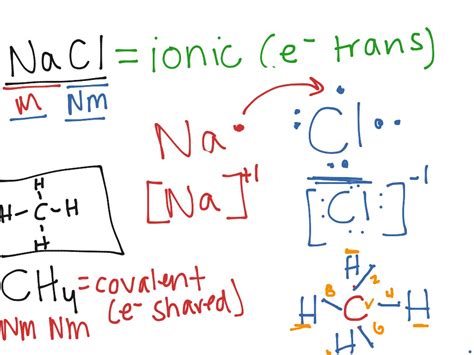 NaCl = ionic (e- trans)
m Nm
Na Cl
[Na]+1 [Cl]-1
H
H-C-H
H
CH4 = covalent
(e- shared)
Nm Nm
H
8 2
H C v 4 H
6
H